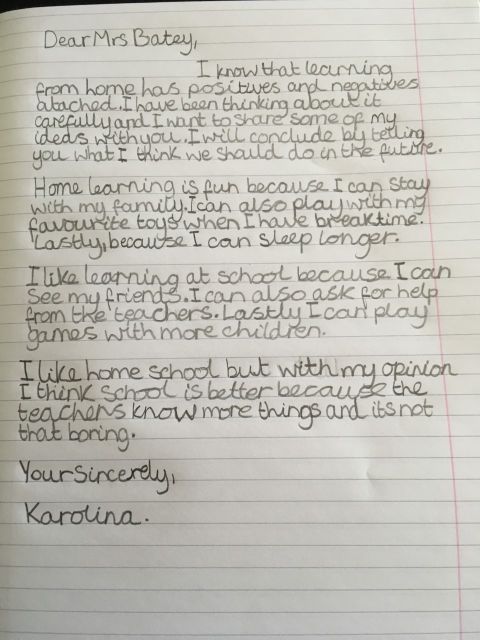 Dear Mrs Batey,
I know that learning
from home has positives and negatives
atached. I have been thinking about it
carefully and I want to share some of my
ideas with you. I will conclude by telling
you what I think we should do in the future.
Home learning is fun because I can stay
with my family. I can also play with my
favourite toys when I have breaktime.
Lastly, because I can sleep longer.
I like learning at school because I can
see my friends. I can also ask for help
from the teachers. Lastly I can play
games with more children.
I like home school but with my opinion
I think school is better because the
teachers know more things and its not
that boring.
Your Sincerely,
Karolina.